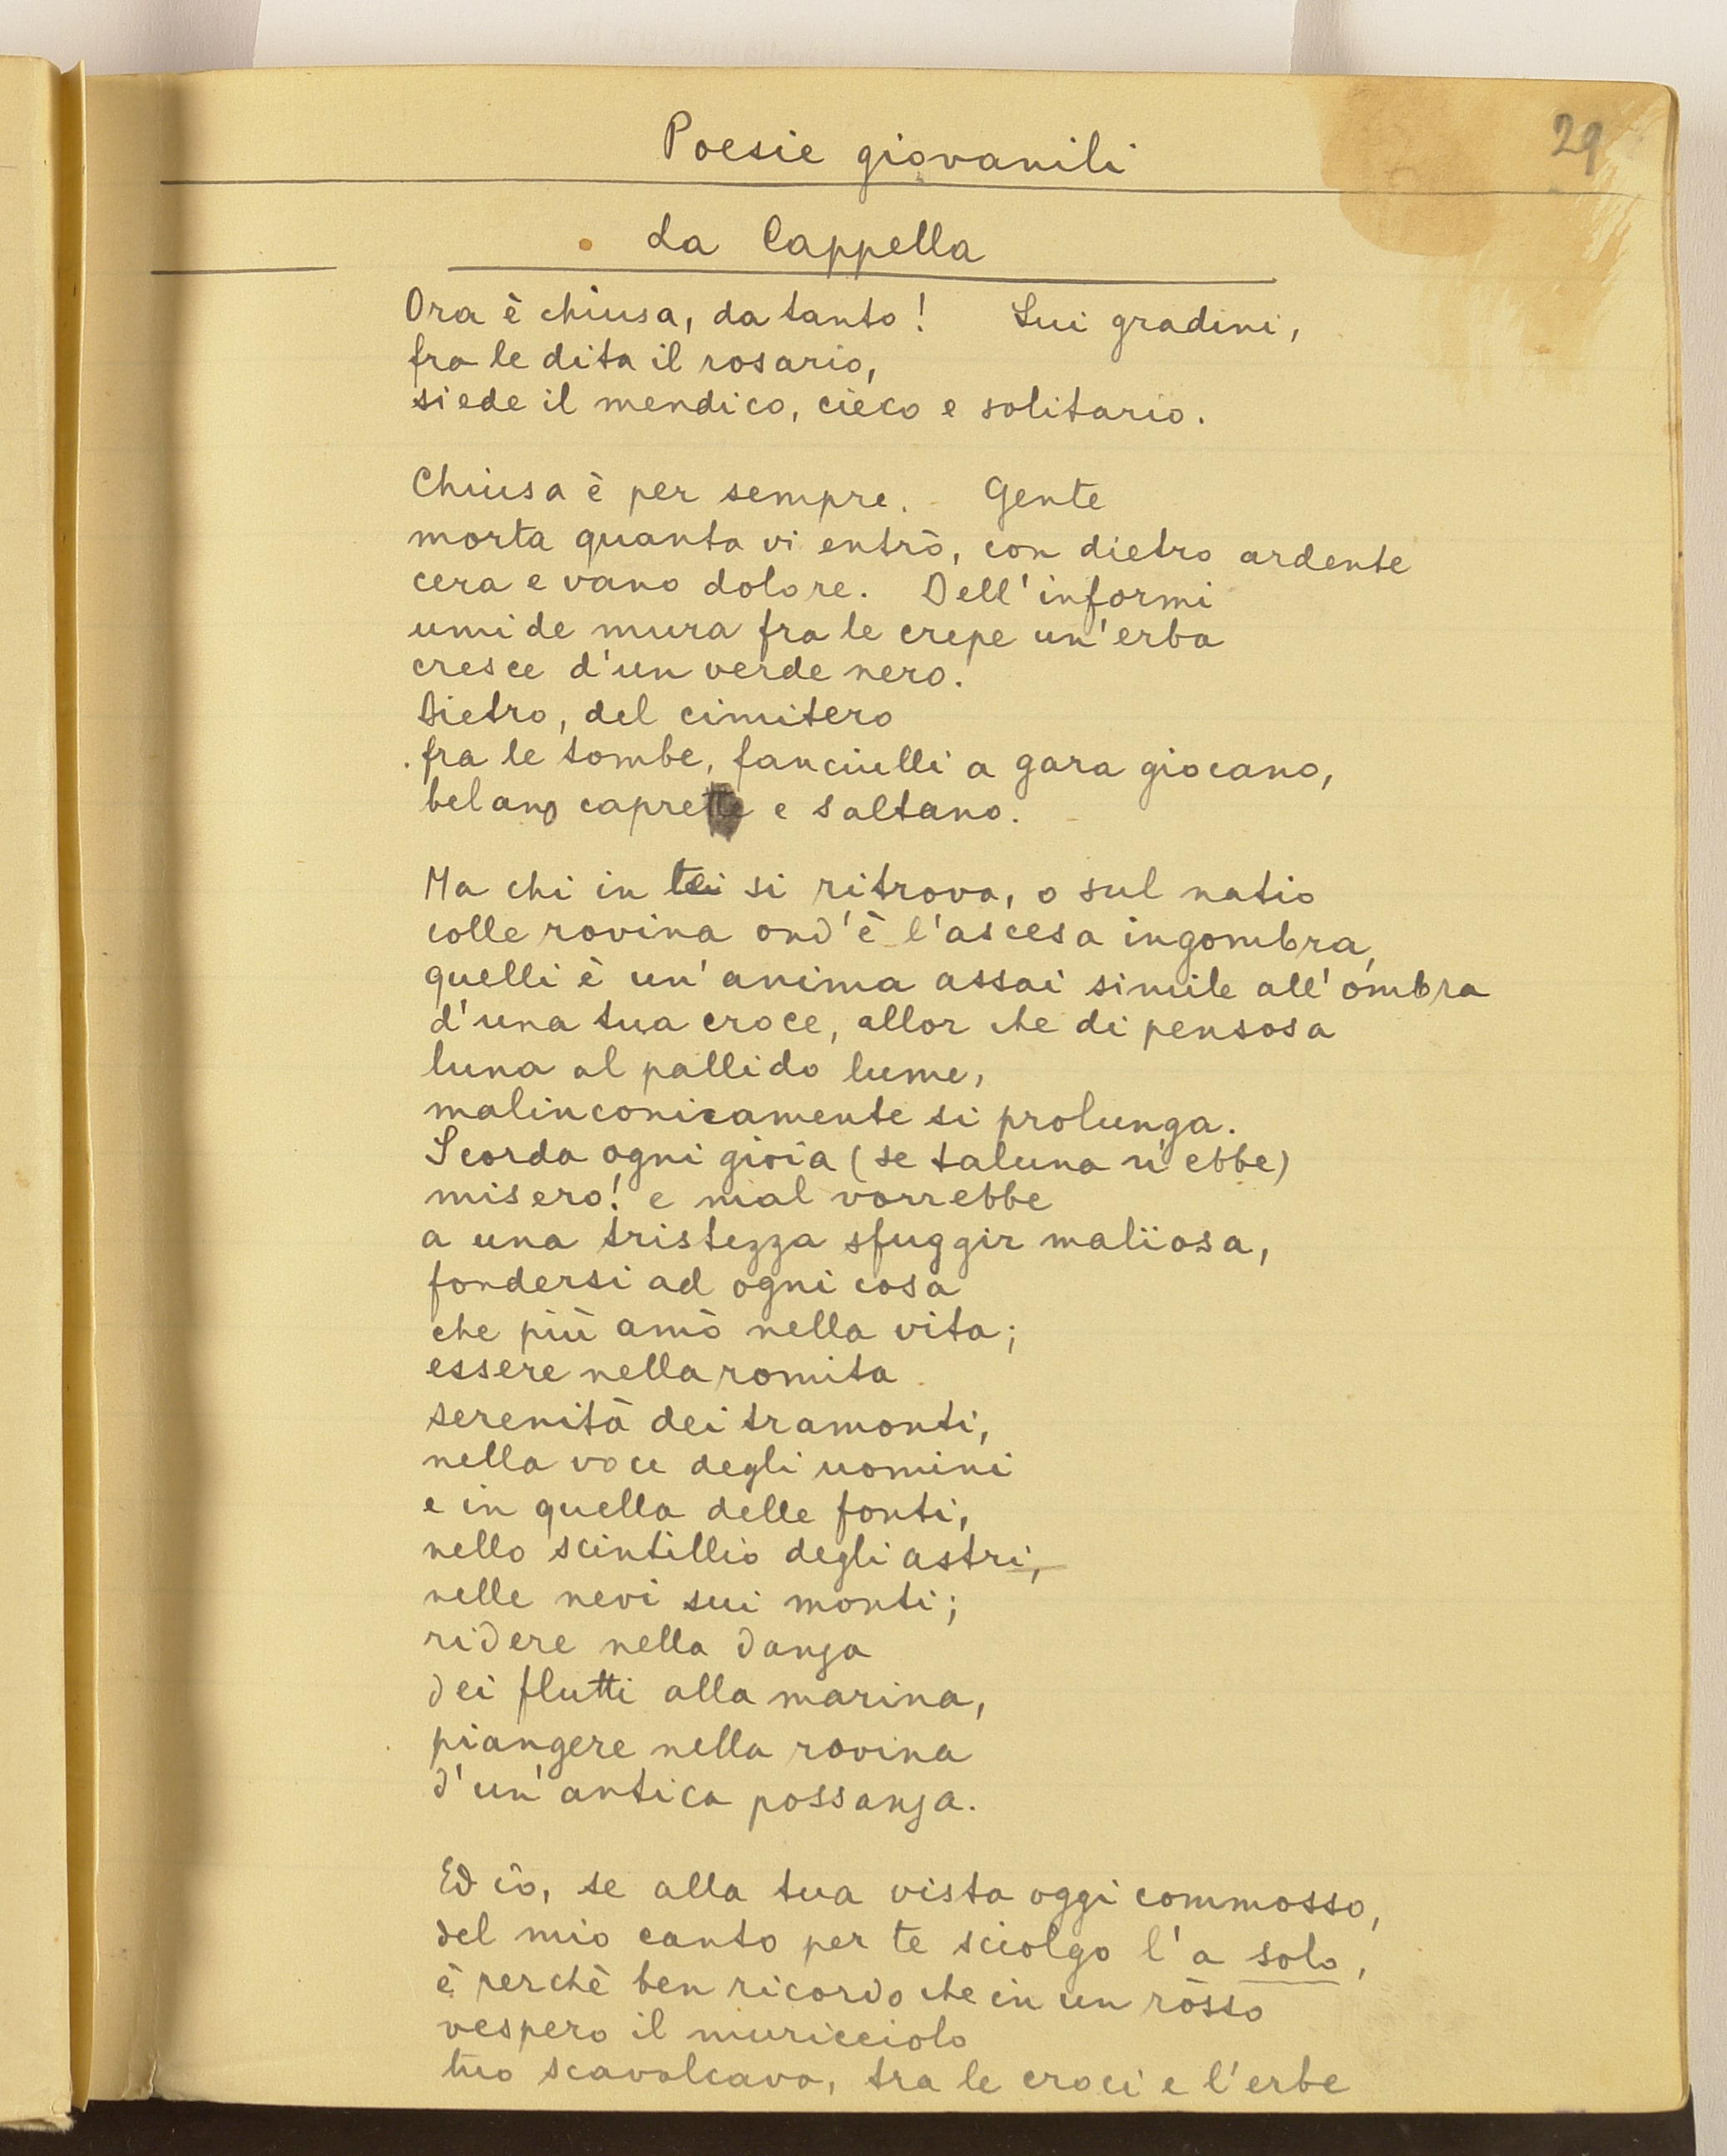 29
Poesie giovanili
La Cappella
Ora è chiusa, da tanto! Sui gradini,
fra le dita il rosario,
siede il mendico, cieco e solitario.
Chiusa è per sempre. Gente
morta quanta vi entrò, con dietro ardente
cera e vano dolore. Dell'informi
umide mura fra le crepe un'erba
cresce d'un verde nero.
Dietro, del cimitero
fra le tombe, fanciulli a gara giocano,
belano caprette e saltano.
Ma chi in te si ritrova, o sul natio
colle rovina ond'è l'ascesa ingombra,
quelli è un'anima assai simile all'ombra
d'una tua croce, allor che di pensosa
luna al pallido lume,
malinconicamente si prolunga.
Scorda ogni gioia (se taluna n'ebbe)
misero! e mal vorrebbe
a una tristezza sfuggir maliïosa,
fondersi ad ogni cosa
che più amò nella vita;
essere nella romita
serenità dei tramonti,
nella voce degli uomini
e in quella delle fonti,
nello scintillio degli astri,
nelle nevi sui monti;
ridere nella danza
dei flutti alla marina,
piangere nella rovina
d'un'antica possanza.
Ed io, se alla tua vista oggi commosso,
del mio canto per te sciolgo l'a solo,
è perchè ben ricordo che in un rosso
vespero il muricciolo
tuo scavalcavo, tra le croci e l'erbe